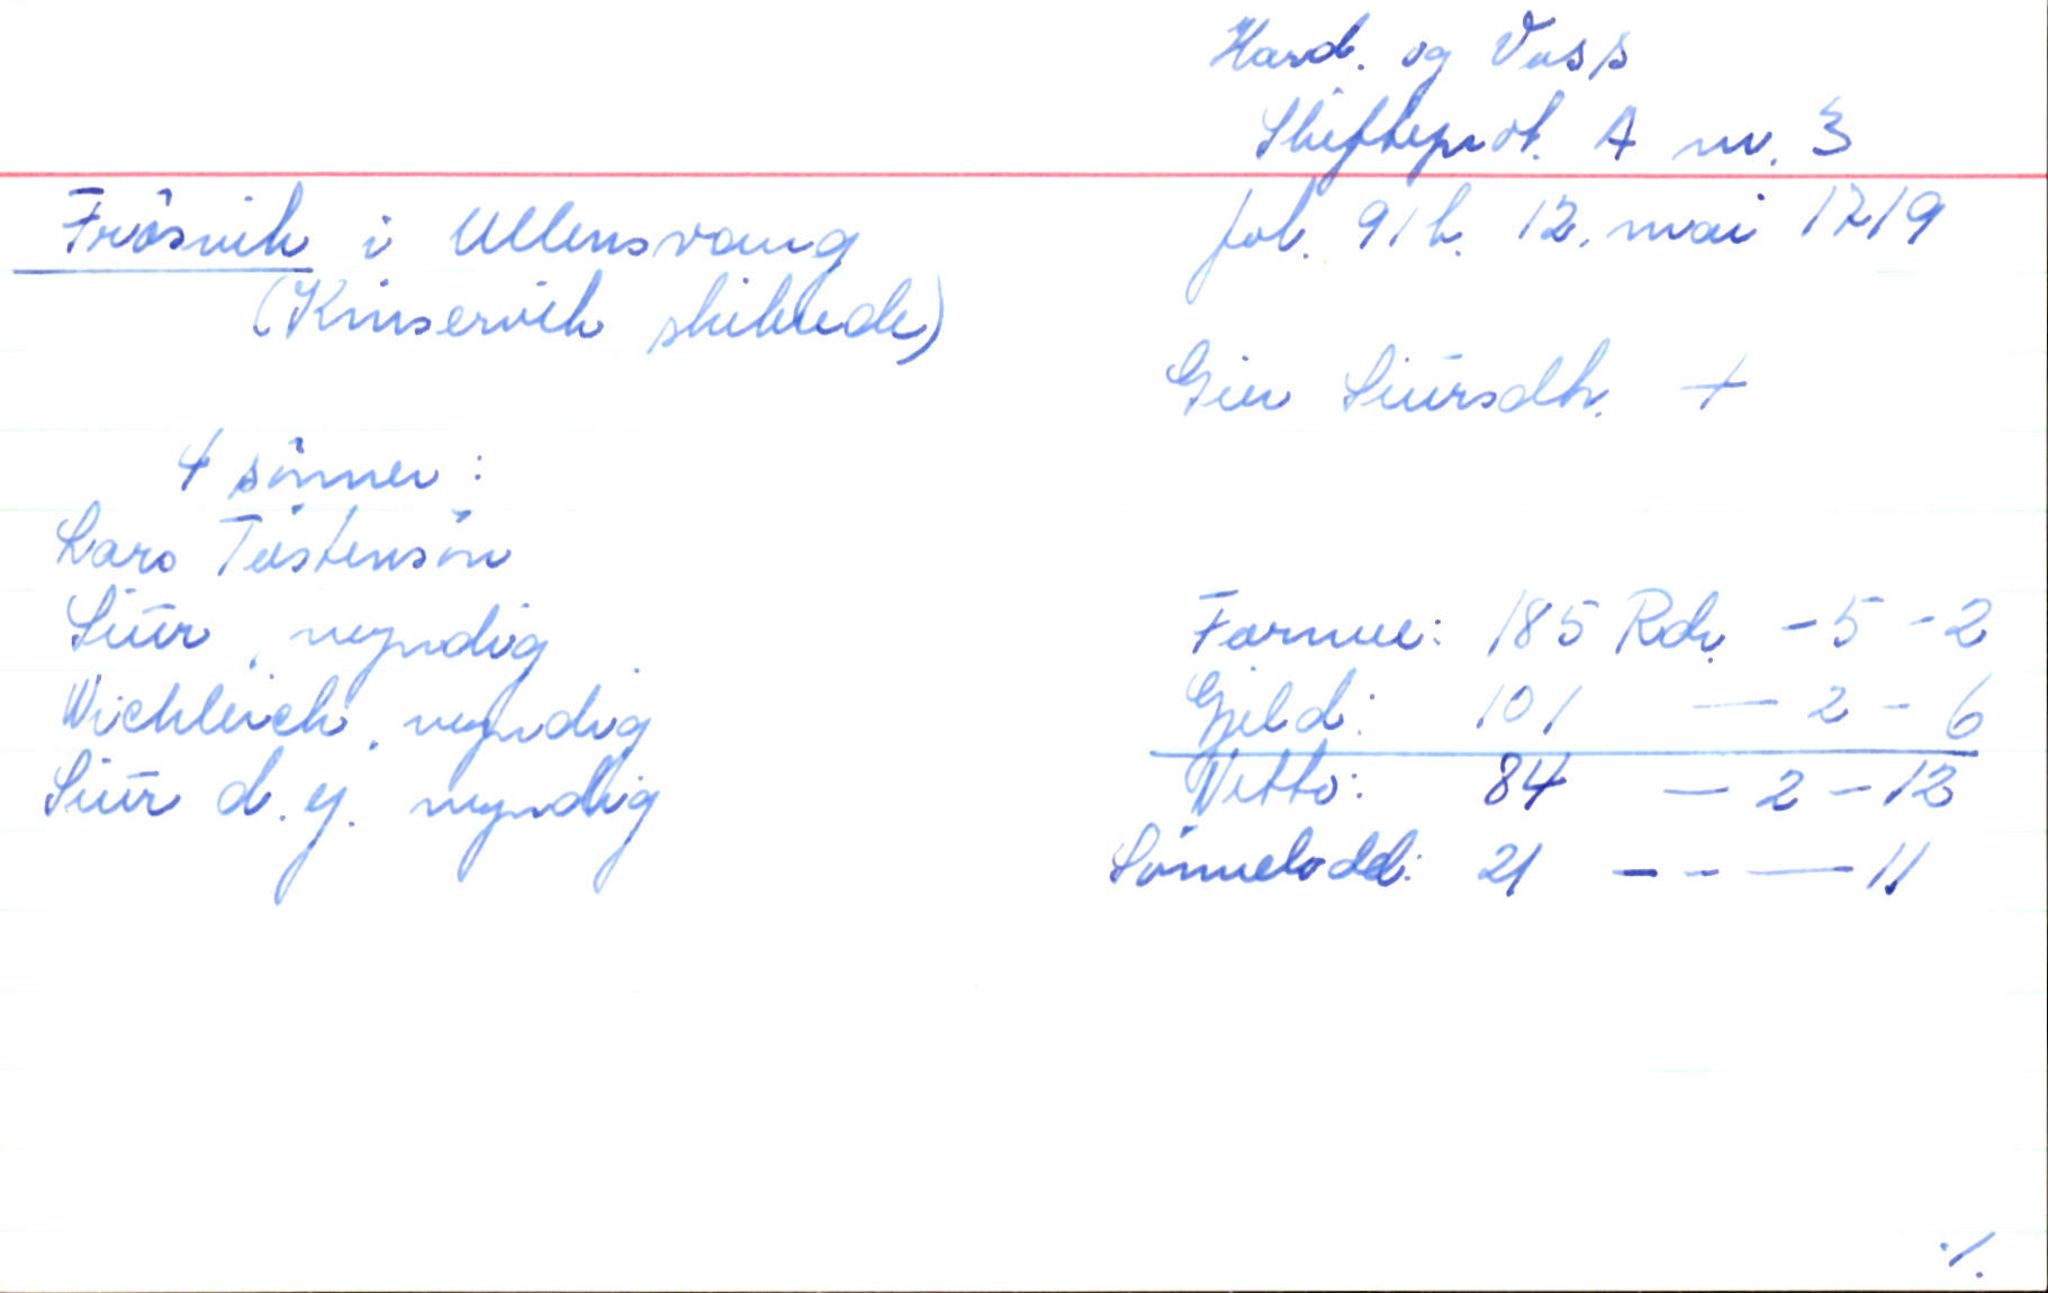 Hard. og Voss
Skifteprot. A nr. 3
fol. 91 b. 12. mai 1719
Frösvik i Ullensvang
(Kinservik skibrede)
Siursdtr. +
4 sönner:
Lars Tostensön
Siūr, myndig
Wichleich, myndig
Siūr d. y. myndig
Formue: 185 Rdr. - 5 - 2
Gjeld: 101 — 2 - 6
Netto: 84 — 2 - 12
Sönnelodd: 21 - - — 11
./.